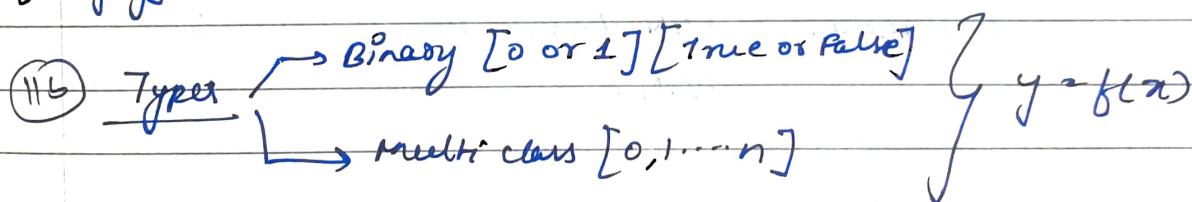 116 Types → Binary [0 or 1] [True or False] } y = f(x)
→ Multi class [0,1.....n]